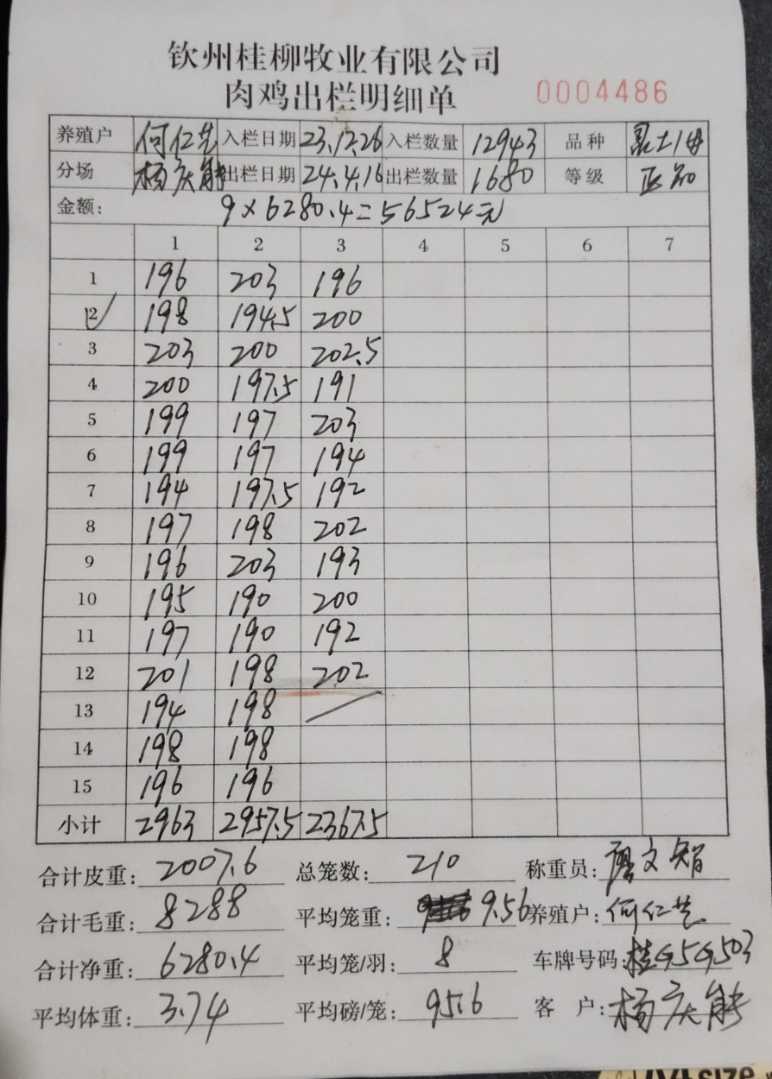 钦州桂柳牧业有限公司
肉鸡出栏明细单 0004486
养殖户 何仁芝 入栏日期 23.12.26 入栏数量 12943 品种
分场 杨庆能 出栏日期 24.4.16 出栏数量 1680 等级 正品
金额: 9×6280.4=56524元
1 2 3 4 5 6 7
1 196 203 196
2 198 194.5 200
3 203 200 202.5
4 200 197.5 191
5 199 197 203
6 199 197 194
7 194 197.5 192
8 197 198 202
9 196 203 193
10 195 190 200
11 197 190 192
12 201 198 202
13 194 198
14 198 198
15 196 196
小计 2963 2957.5 2367.5
合计皮重: 2007.6 总笼数: 210 称重员: 廖文智
合计毛重: 8288 平均笼重: 9.56 养殖户: 何仁芝
合计净重: 6280.4 平均笼/羽: 8 车牌号码:
平均体重: 3.74 平均磅/笼: 95.6 客 户: 杨庆能